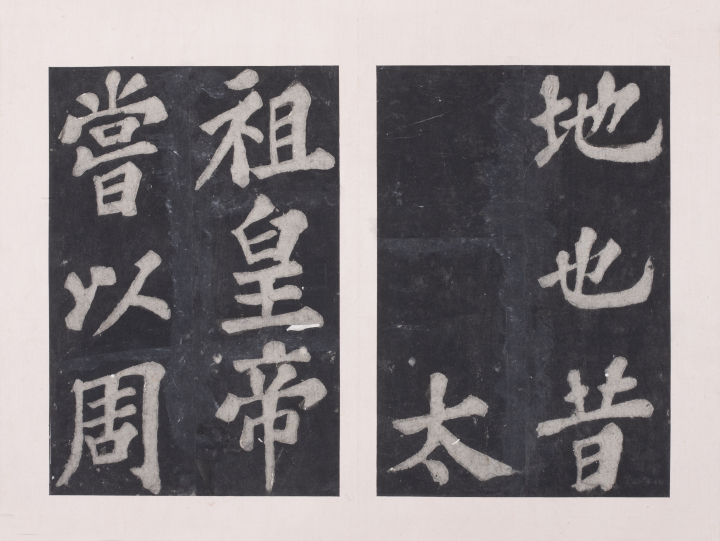 地也昔
太
祖皇帝
嘗以周